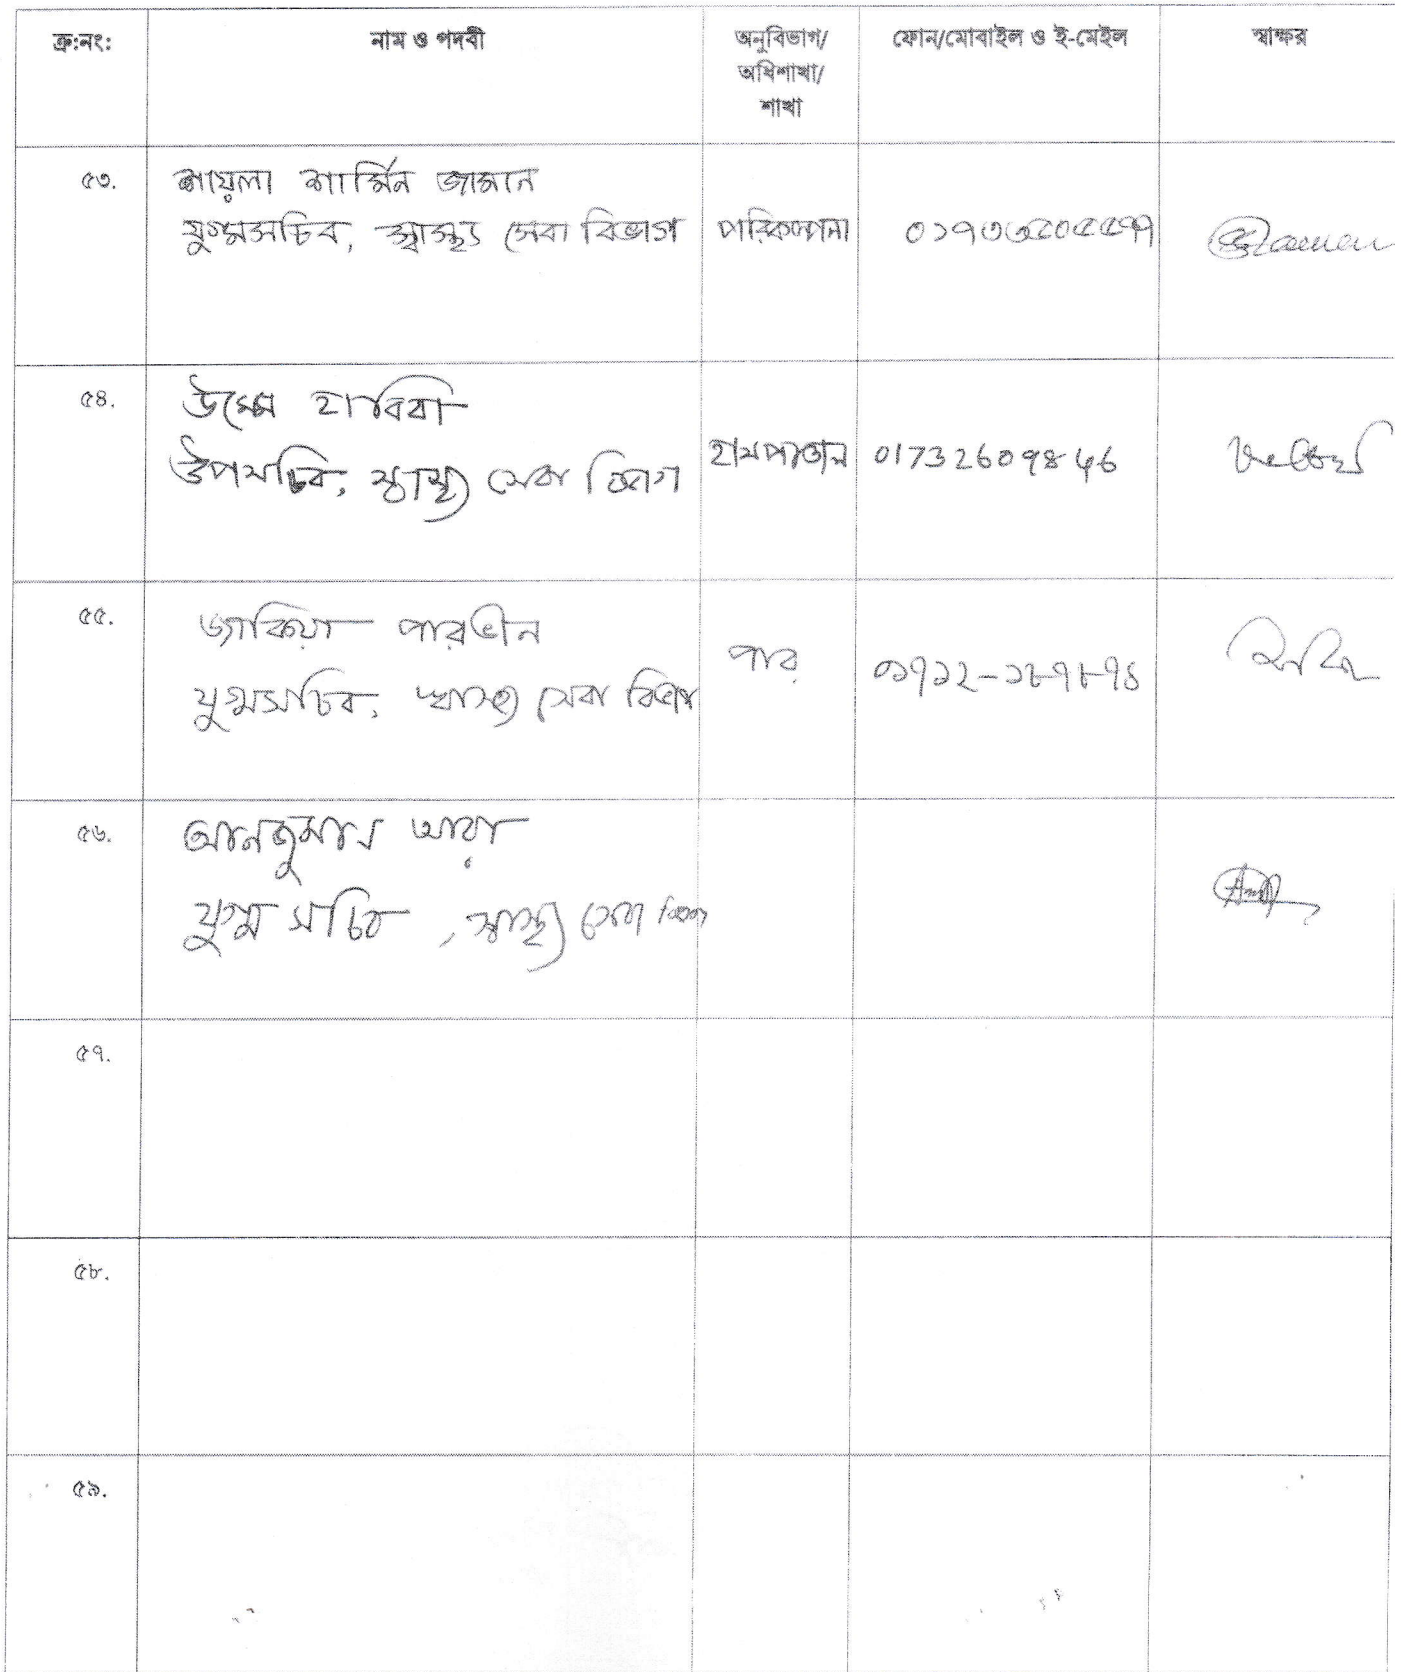 ক্র:নং: নাম ও পদবী অনুবিভাগ/ ফোন/মোবাইল ও ই-মেইল স্বাক্ষর
অধিশাখা/
শাখা
৫৩. শায়লা শার্মিন জামান
যুগ্মসচিব, স্বাস্থ্য সেবা বিভাগ পরিকল্পনা
৫৪. উম্মে হাবিবা
উপসচিব, স্বাস্থ্য সেবা বিভাগ হাসপাতাল 01732609846
৫৫. জাকিয়া পারভীন
যুগ্মসচিব, স্বাস্থ্য সেবা বিভাগ পার ০১৭১২-১৮৭৮৭১
৫৬. আনজুমান আরা
যুগ্ম সচিব, স্বাস্থ্য সেবা বিভাগ
৫৭.
৫৮.
৫৯.